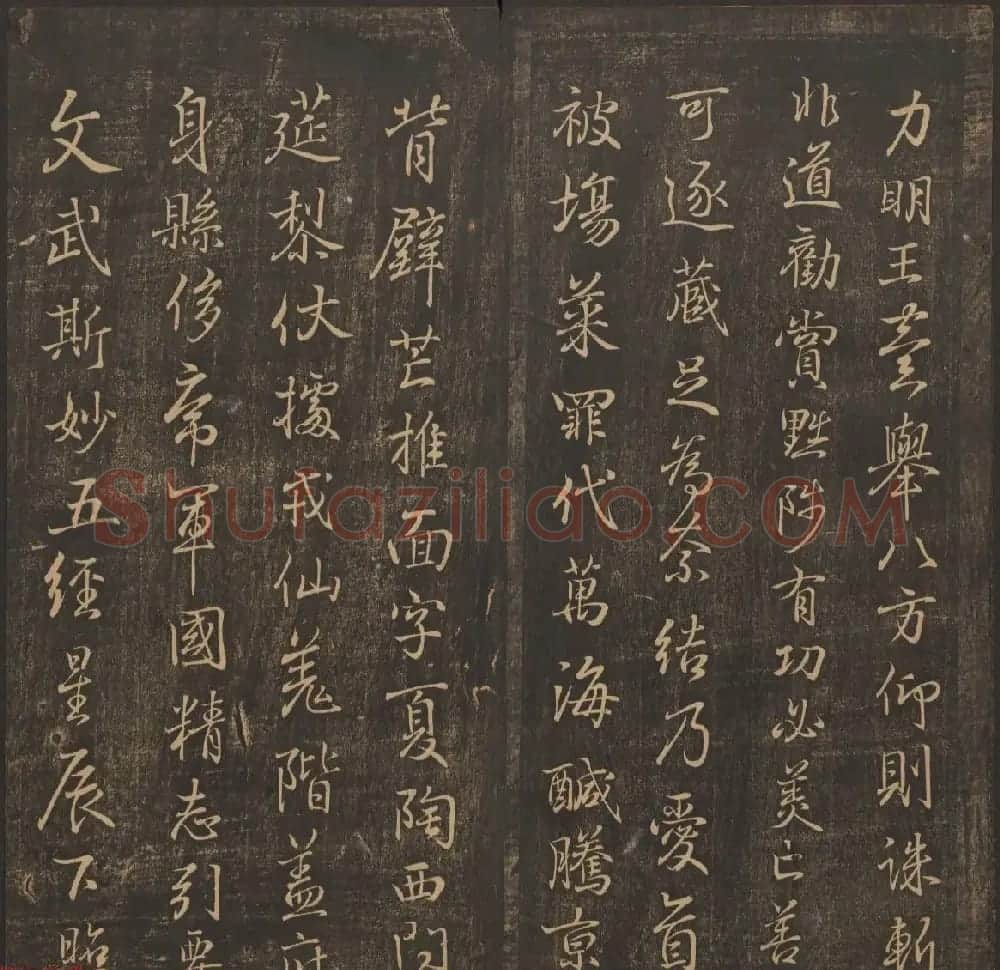 力明王舉八方仰則誅斬
非道勸賞黜陟有功必美亡善
可逐藏足為奈結乃愛首
被場菜罪代萬海醎騰京
背芒推面字夏陶西問
莚黎仗據我仙羗階盖府
身縣侈帝軍國精志引要
文武斯妙五經星辰下昭
Shufaziliao.COM